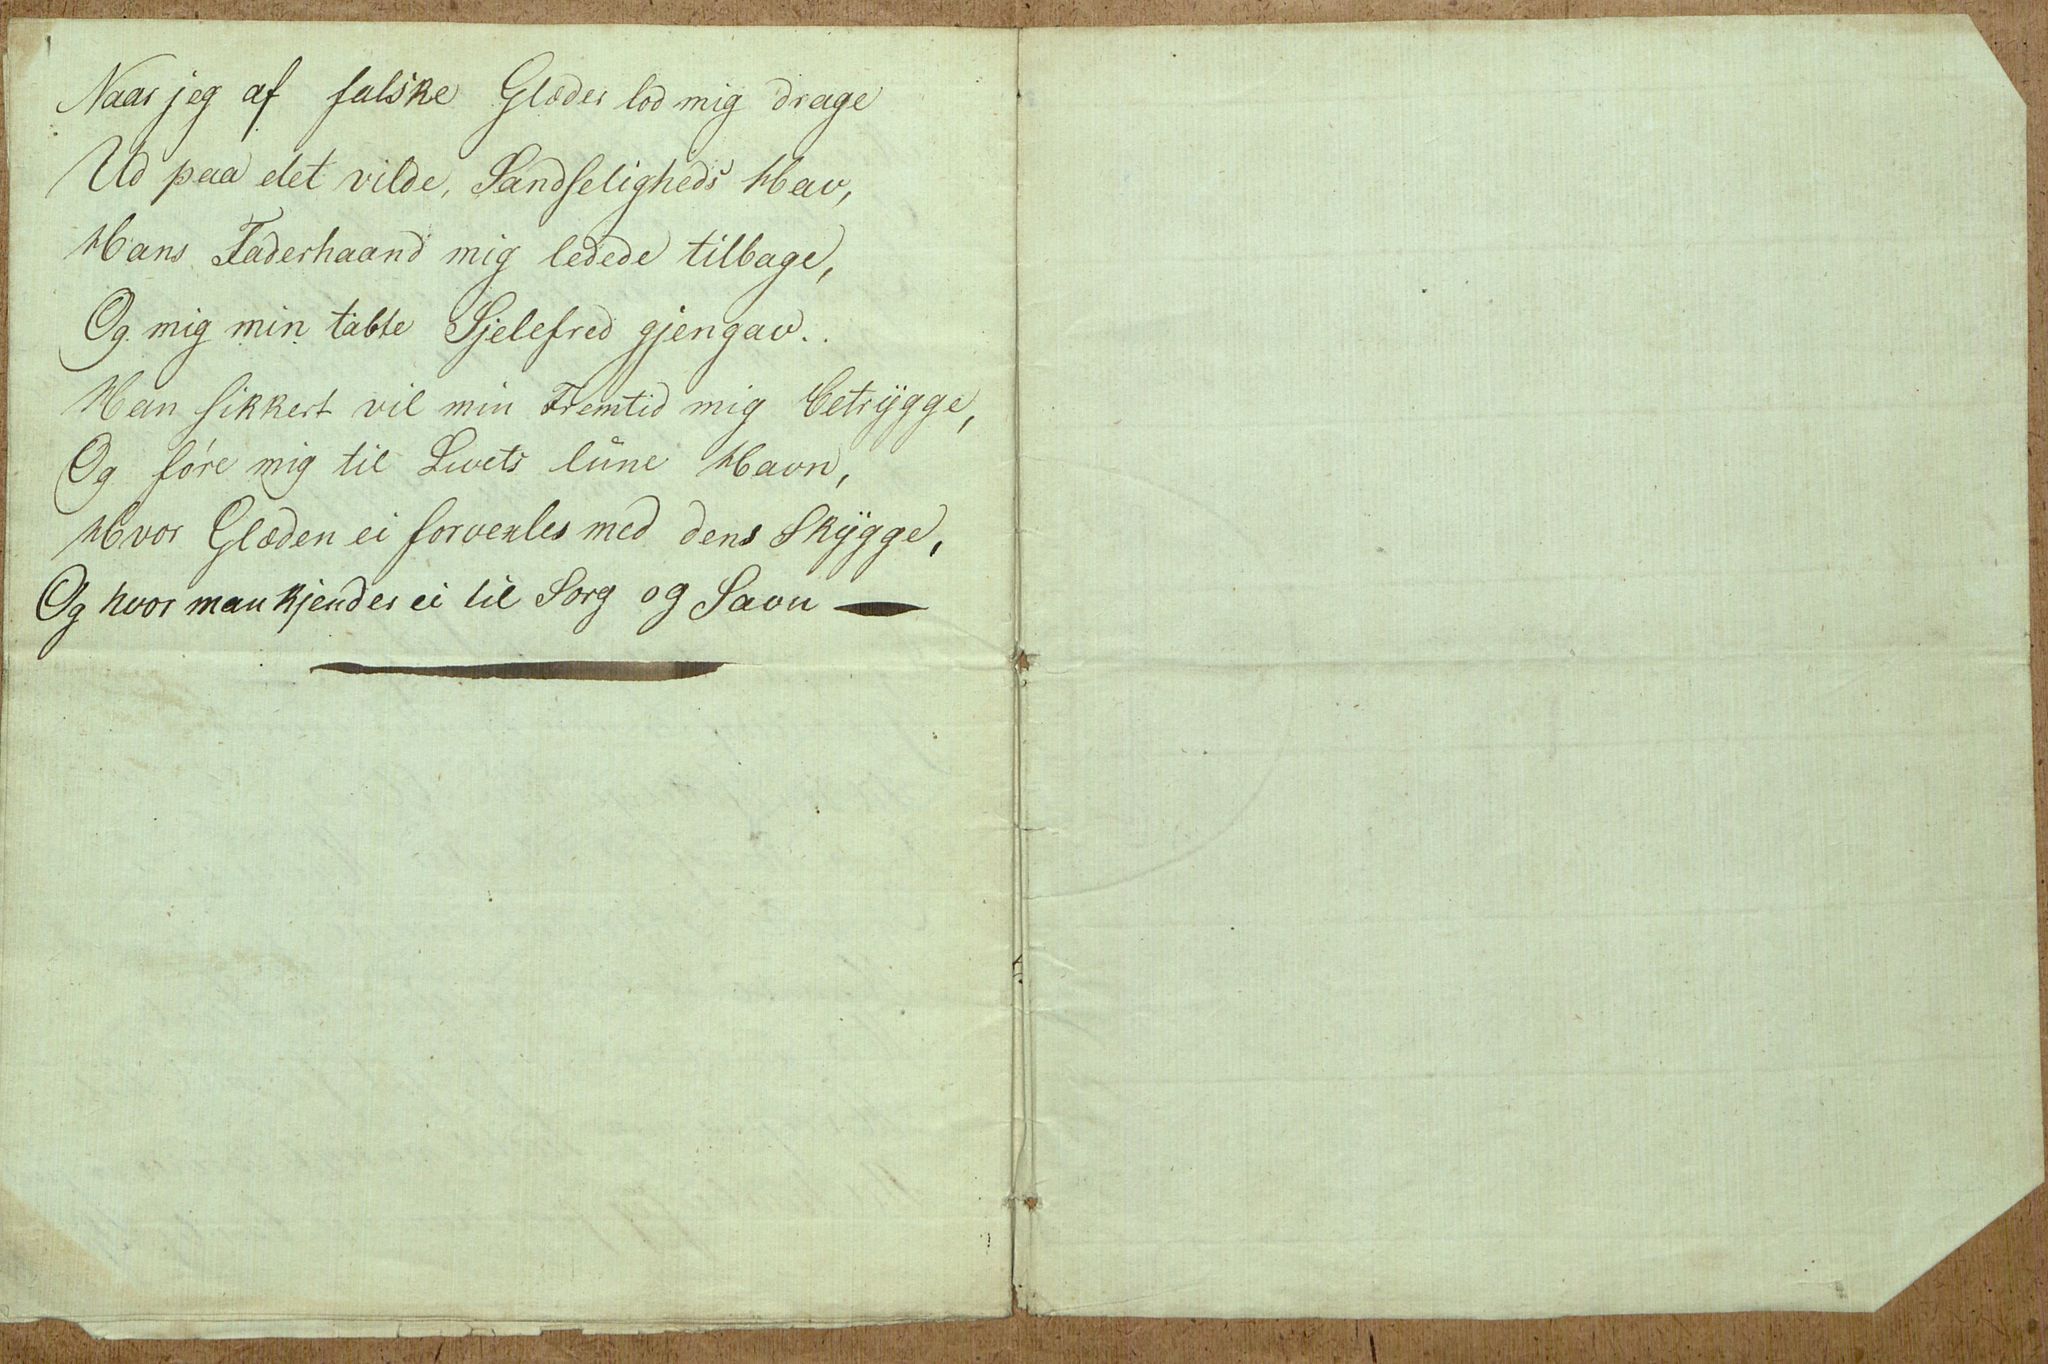 Naar jeg af falske Glæder lod mig drage
Ud paa det vilde, Sandseligheds Hav,
Hans Faderhaand mig ledede tilbage,
Og mig min tabte Sjelefred gjengav..
Han sikkert vil min Fremtid mig betrÿgge,
Og føre mig til Livets lune Havn,
Hvor Glæden ei forvexles med dens Skÿgge,
Og hvor man kjender ei til Sorg og Savn —